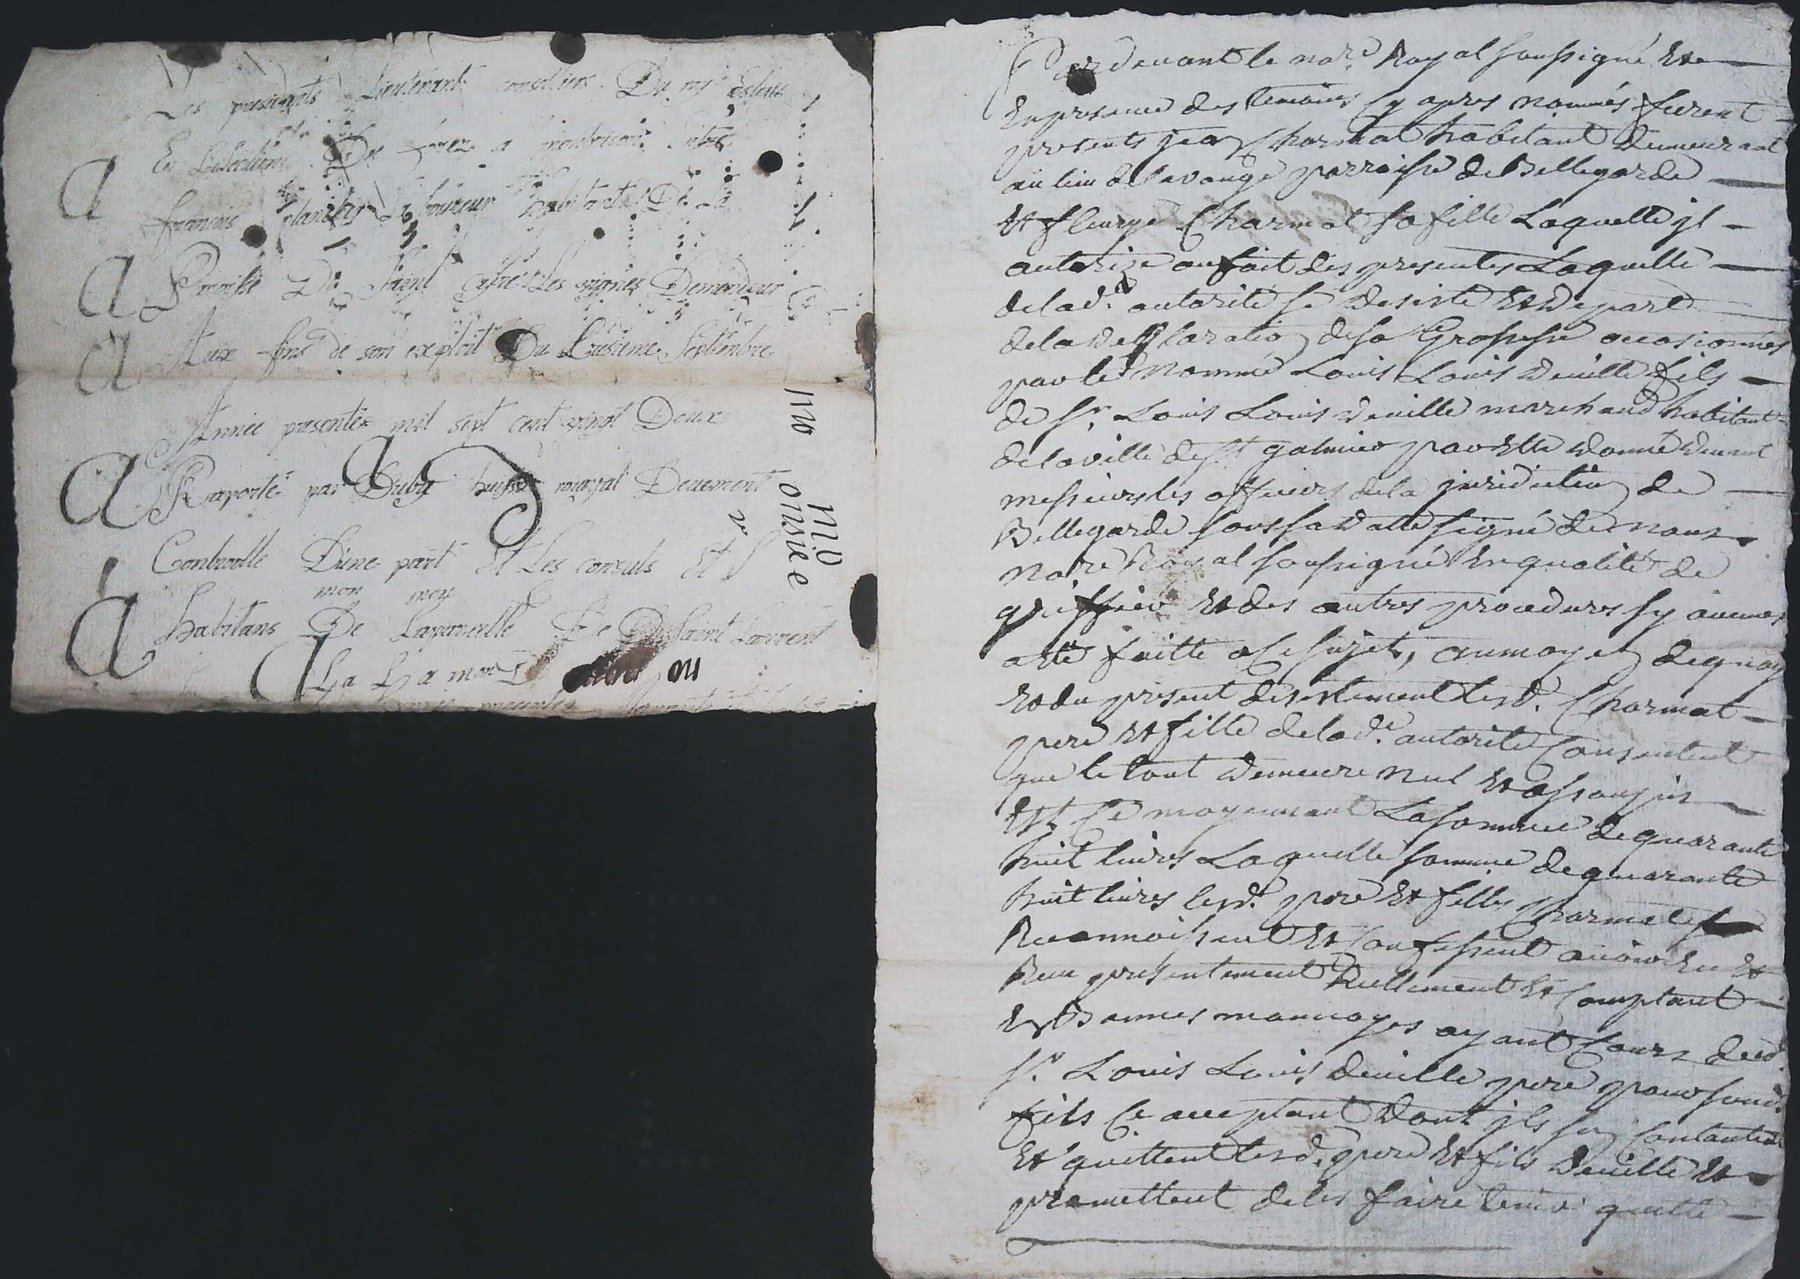 Les presidents Lieutenant conseliers Du roy Esleus
En Lelection De forez a
françois planchet Laboureur habitant De La
Paroisse De Saint Les vignes Demandeur
Aux fins de son exploit Du treisieme Septembre
Année presente mil sept cent vingt Deux
Raporté par Duby huissier royal Deuement
Controollé Dune part Et Les consuls Et
mon moy
habitans De Laparcelle De Saint Laurent
La
Pardevant le nore. Royal soussigné Et
En presence des temoins cy apres nommés furent
presents jean Charmat habitant demeurant
au lieu de lavange parroisse de Bellegarde
Et fleurye Charmat sa fille Laquelle jl
autorize au fait des presentes Laquelle
de lad. autorité se desiste Et depart
de la declaration de sa Grossesse occasionnée
par le nommé Louis Louis deville fils
de Sr. Louis Louis deville marchand habitant
de la ville de St galmier par Elle donné devant
messieurs les officiers de la juridiction de
Bellegarde sous sa datte signé de nous
nore Royal soussigné En qualité de
greffier Et des autres procedures sy aucunes
a été faitte a ce sujet, au moyen de quoy
Et du present desistement lesd. Charmat
pere Et fille de lad. autorité Consentent
que le tout demeure nul Et assoupis
Et Ce moyennant La somme de quarante
huit livres Laquelle somme de quarante
huit livres lesd. pere Et fille Charmat
Reconnoissent Et Confessent avoir Eu Et
Receu presentement Reellement Et Comptant
En Bonnes monnoyes ayant Cours dud.
Sr. Louis Louis deville pere pour sond.
fils Ce acceptant dont jls se Contantent
Et quittent lesd. pere Et fils deville Et
promettent de les faire tenir quitte